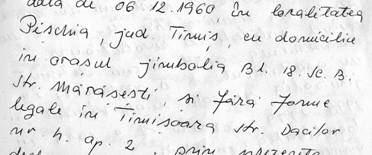 data de 06 12.1960, în localitatea
Pischia, jud Timiș, cu domiciliu
în orasul jimbolia Bl. 18. Sc. B.
Str. Mărăsesti, si fără forme
legale în Timisoara str. Dacilor
nr 4. ap. 2, prin prezenta